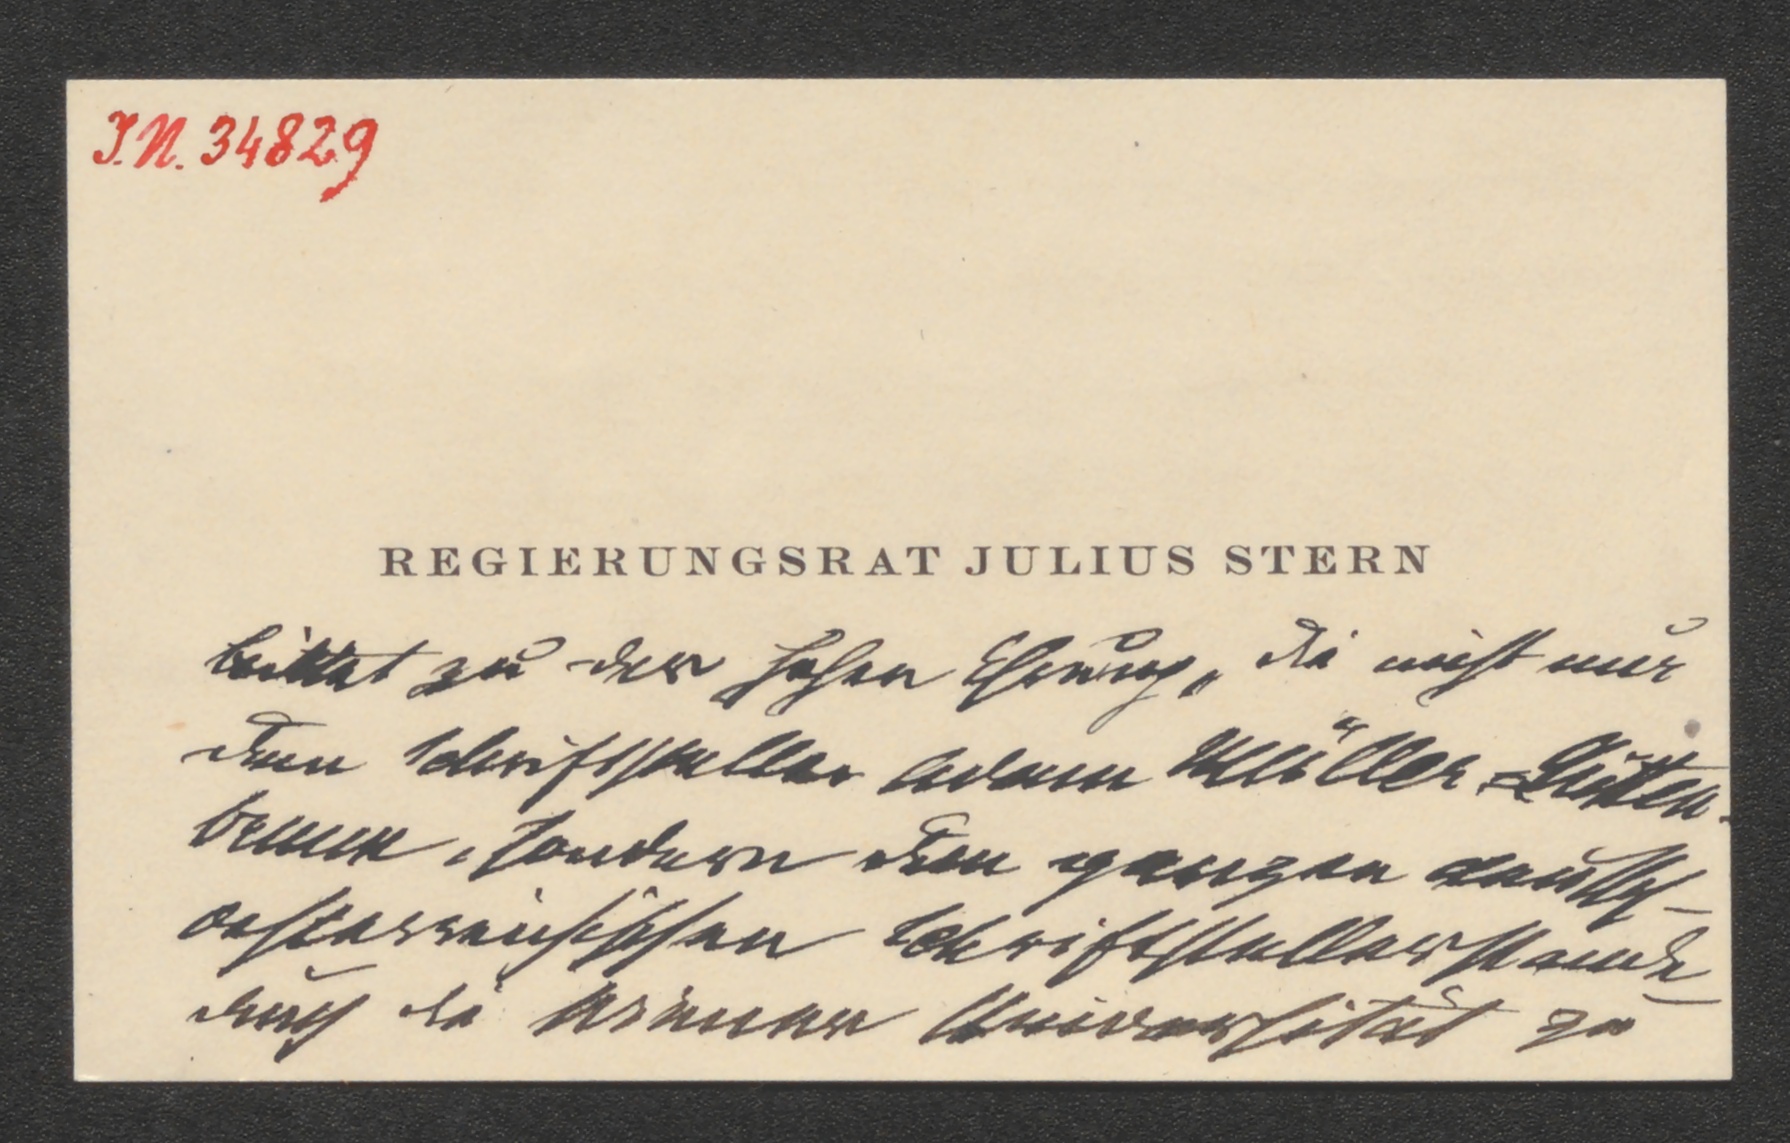 I.N. 34829
REGIERUNGSRAT JULIUS STERN
zu der hohen Ehrung, die nicht nur
dem Schriftsteller Adam Müller-Gutten-
brunn, sondern dem ganzen deutsch-
oesterreichischen Schriftstellerstande
durch die Wiener Universität zu